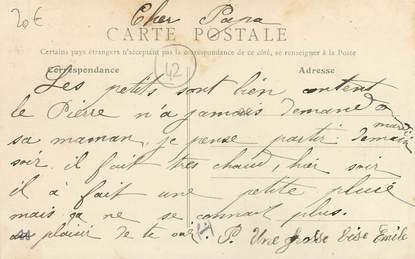 20€
Cher Papa
CARTE POSTALE
Certains pays étrangers n'acceptant pas la correspondance de ce côté, se renseigner à la Poste
Correspondance
Adresse
42
Les petits sont bien content
le Pierre n'a jamais demandé
sa maman, je pense partir demain mardi
soir il fait très chaud, hier soir
il à fait une petite pluie
mais ça ne se connait plus.
plaisir de te voir. P. Une grosse bise Emile